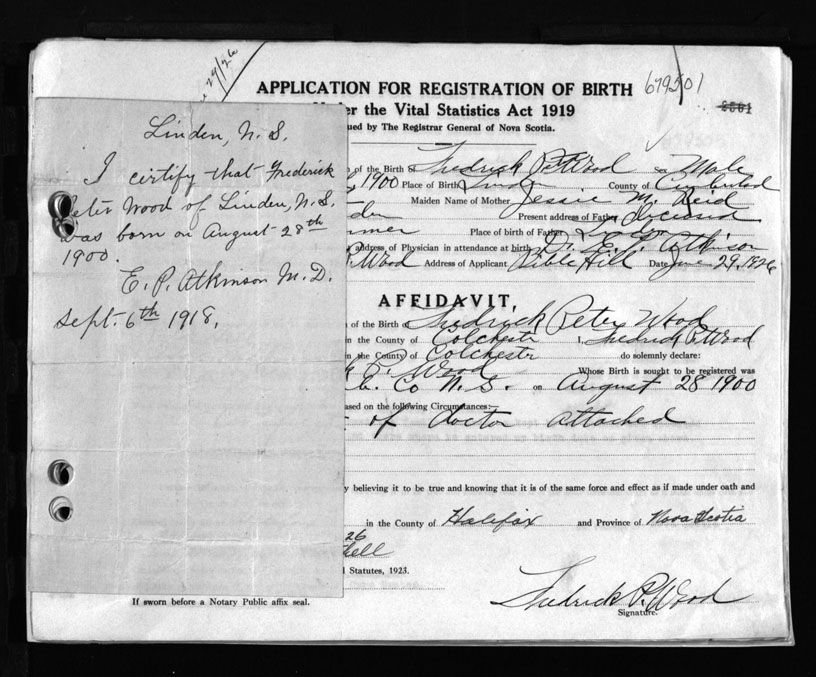 29/26
APPLICATION FOR REGISTRATION OF BIRTH
679501
2501
the Vital Statistics Act 1919
ued by The Registrar General of Nova Scotia.
Linden, N. S.
I certify that Frederick
Peter Wood of Linden, N. S.
was born on August 28th
1900.
E. P. Atkinson M. D.
Sept. 6th 1918.
of the Birth of Fredrick P. Wood Male
1900 Place of Birth County of Cumberland
Maiden Name of Mother Jessie M. Reid
den Present address of Father deceased
Place of birth of Father Linden
address of Physician in attendance at birth Dr. E. P. Atkinson
P. Wood Address of Applicant Bible Hill Date June 29, 1926
AFFIDAVIT.
of the Birth of Fredrick Peter Wood
n the County of Colchester I, Fredrick P. Wood
n the County of Colchester do solemnly declare:
k P. Wood Whose Birth is sought to be registered was
b. Co N. S. on August 28 1900
ased on the following Circumstances:—
of doctor attached
y believing it to be true and knowing that it is of the same force and effect as if made under oath and
in the County of Halifax and Province of Nova Scotia
26
hell
l Statutes, 1923.
If sworn before a Notary Public affix seal.
Fredrick P. Wood
Signature.